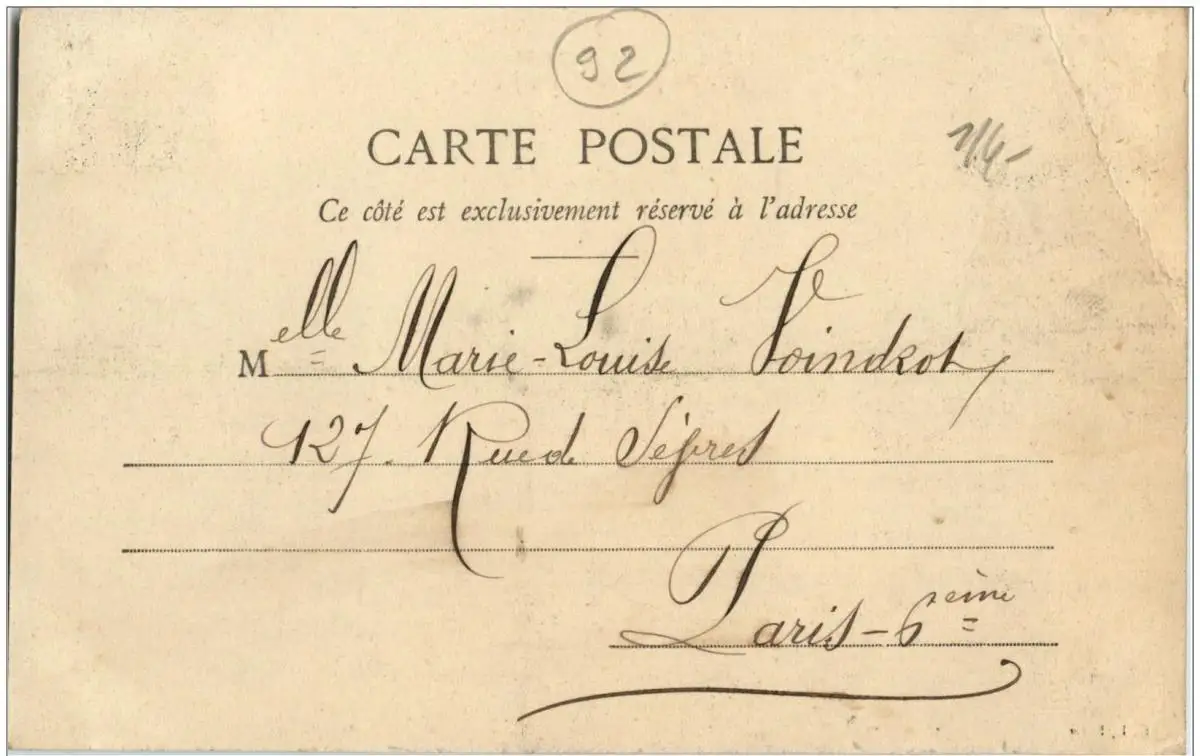 92
CARTE POSTALE
Ce côté est exclusivement réservé à l'adresse
Melle Marie-Louise Voindrot,
127. Rue de Sèvres
Paris-6eme